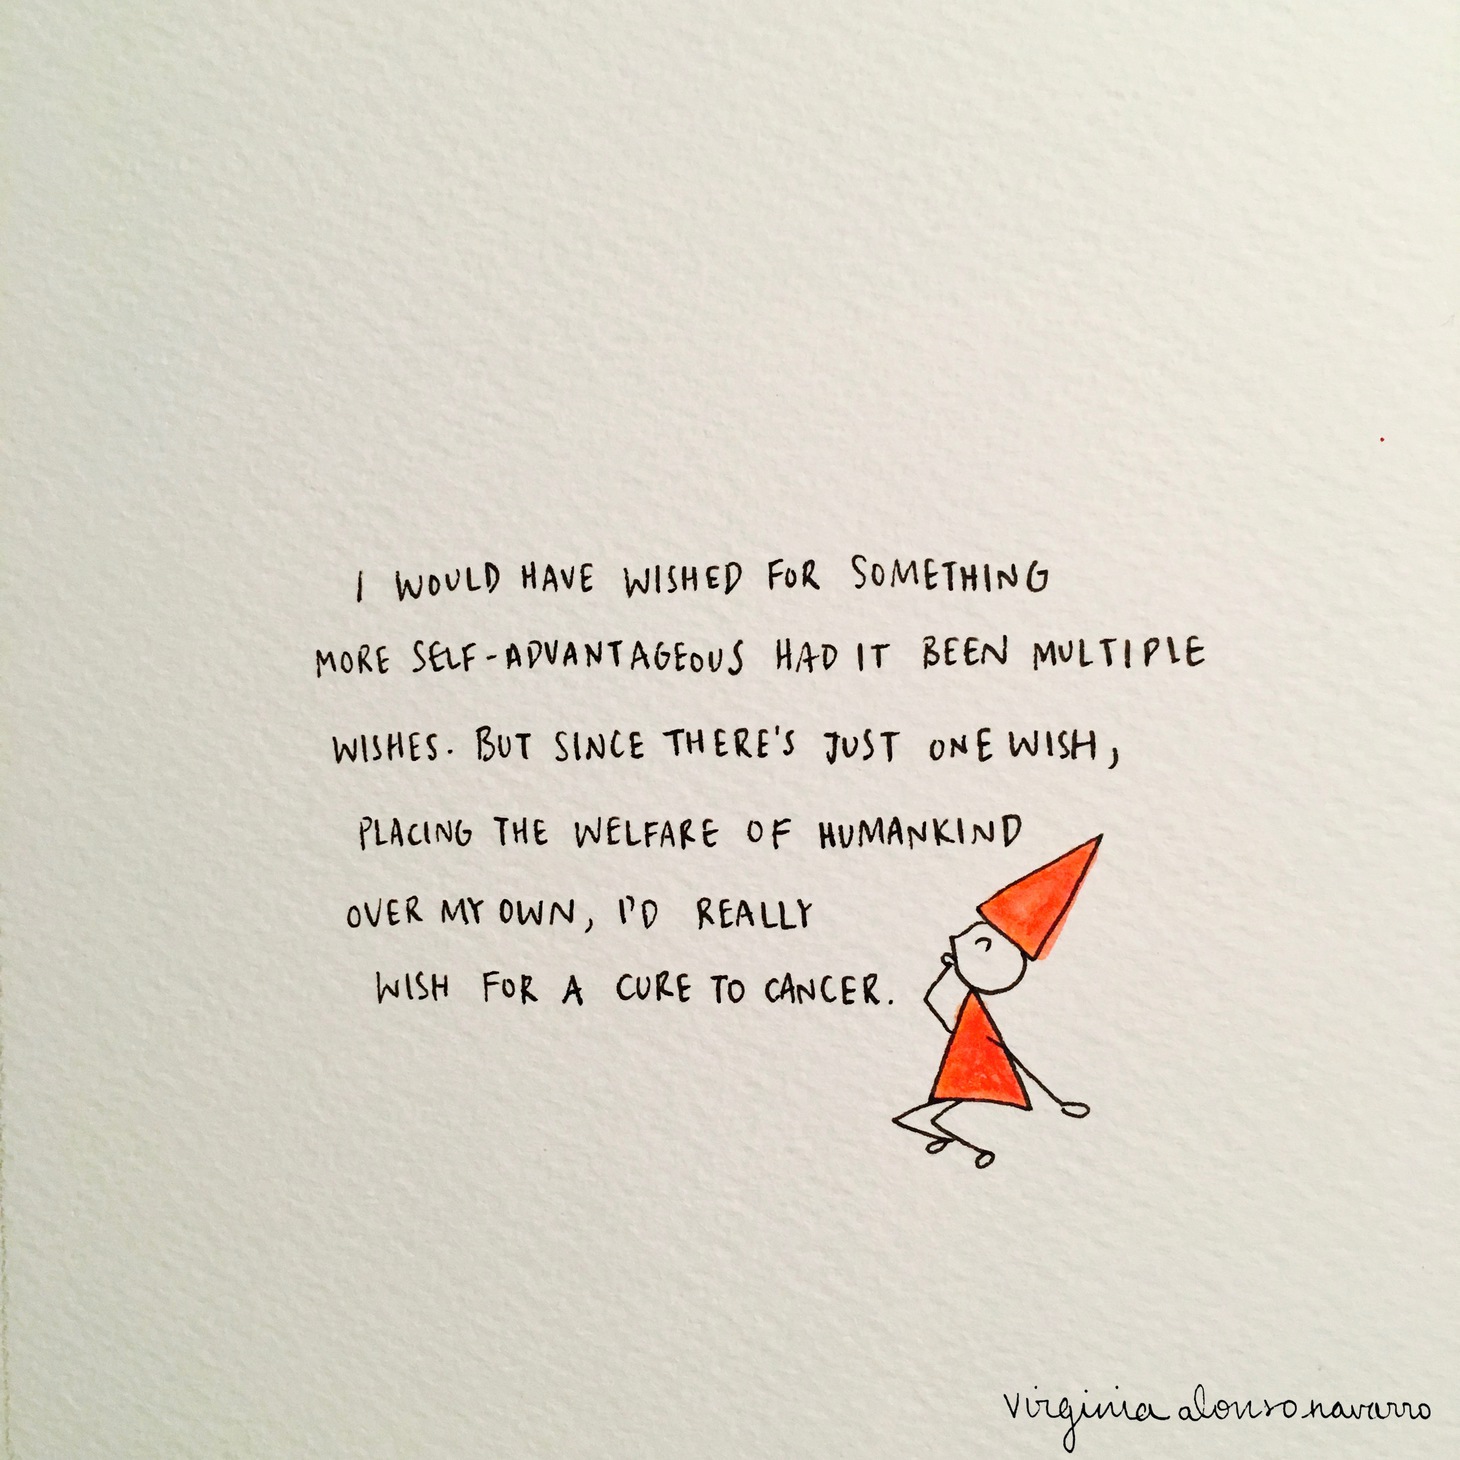 I WOULD HAVE WISHED FOR SOMETHING
MORE SELF-ADVANTAGEOUS HAD IT BEEN MULTIPLE
WISHES. BUT SINCE THERE'S JUST ONE WISH,
PLACING THE WELFARE OF HUMANKIND
OVER MY OWN, I'D REALLY
WISH FOR A CURE TO CANCER.
virginia alonso navarro